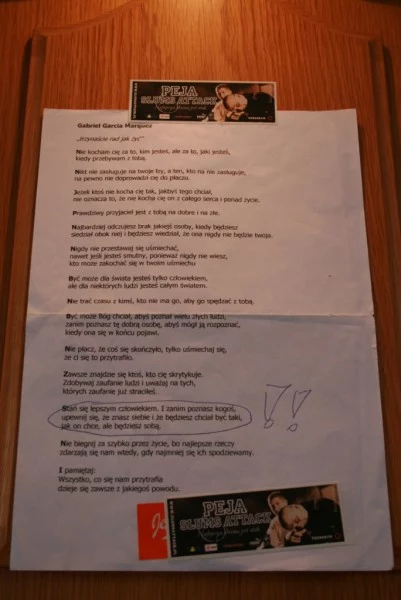 PEJA
SLUMS ATTACK
Gabriel Garcia Marquez
„Trzynaście rad jak żyć"
Nie kocham cię za to, kim jesteś, ale za to, jaki jesteś,
kiedy przebywam z tobą.
Nikt nie zasługuje na twoje łzy, a ten, kto na nie zasługuje,
na pewno nie doprowadzi cię do płaczu.
Jeżeli ktoś nie kocha cię tak, jakbyś tego chciał,
nie oznacza to, że nie kocha cię on z całego serca i ponad życie.
Prawdziwy przyjaciel jest z tobą na dobre i na złe.
Najbardziej odczujesz brak jakiejś osoby, kiedy będziesz
siedział obok niej i będziesz wiedział, że ona nigdy nie będzie twoja.
Nigdy nie przestawaj się uśmiechać,
nawet jeśli jesteś smutny, ponieważ nigdy nie wiesz,
kto może zakochać się w twoim uśmiechu
Być może dla świata jesteś tylko człowiekiem,
ale dla niektórych ludzi jesteś całym światem.
Nie trać czasu z kimś, kto nie ma go, aby go spędzać z tobą.
Być może Bóg chciał, abyś poznał wielu złych ludzi,
zanim poznasz tę dobrą osobę, abyś mógł ją rozpoznać,
kiedy ona się w końcu pojawi.
Nie płacz, że coś się skończyło, tylko uśmiechaj się,
że ci się to przytrafiło.
Zawsze znajdzie się ktoś, kto cię skrytykuje.
Zdobywaj zaufanie ludzi i uważaj na tych,
których zaufanie już straciłeś.
Stań się lepszym człowiekiem. I zanim poznasz kogoś,
upewnij się, że znasz siebie i że będziesz chciał być taki,
jak on chce, ale będziesz sobą.
!!
Nie biegnij za szybko przez życie, bo najlepsze rzeczy
zdarzają się nam wtedy, gdy najmniej się ich spodziewamy.
I pamiętaj:
Wszystko, co się nam przytrafia
dzieje się zawsze z jakiegoś powodu.
PEJA
SLUMS ATTACK